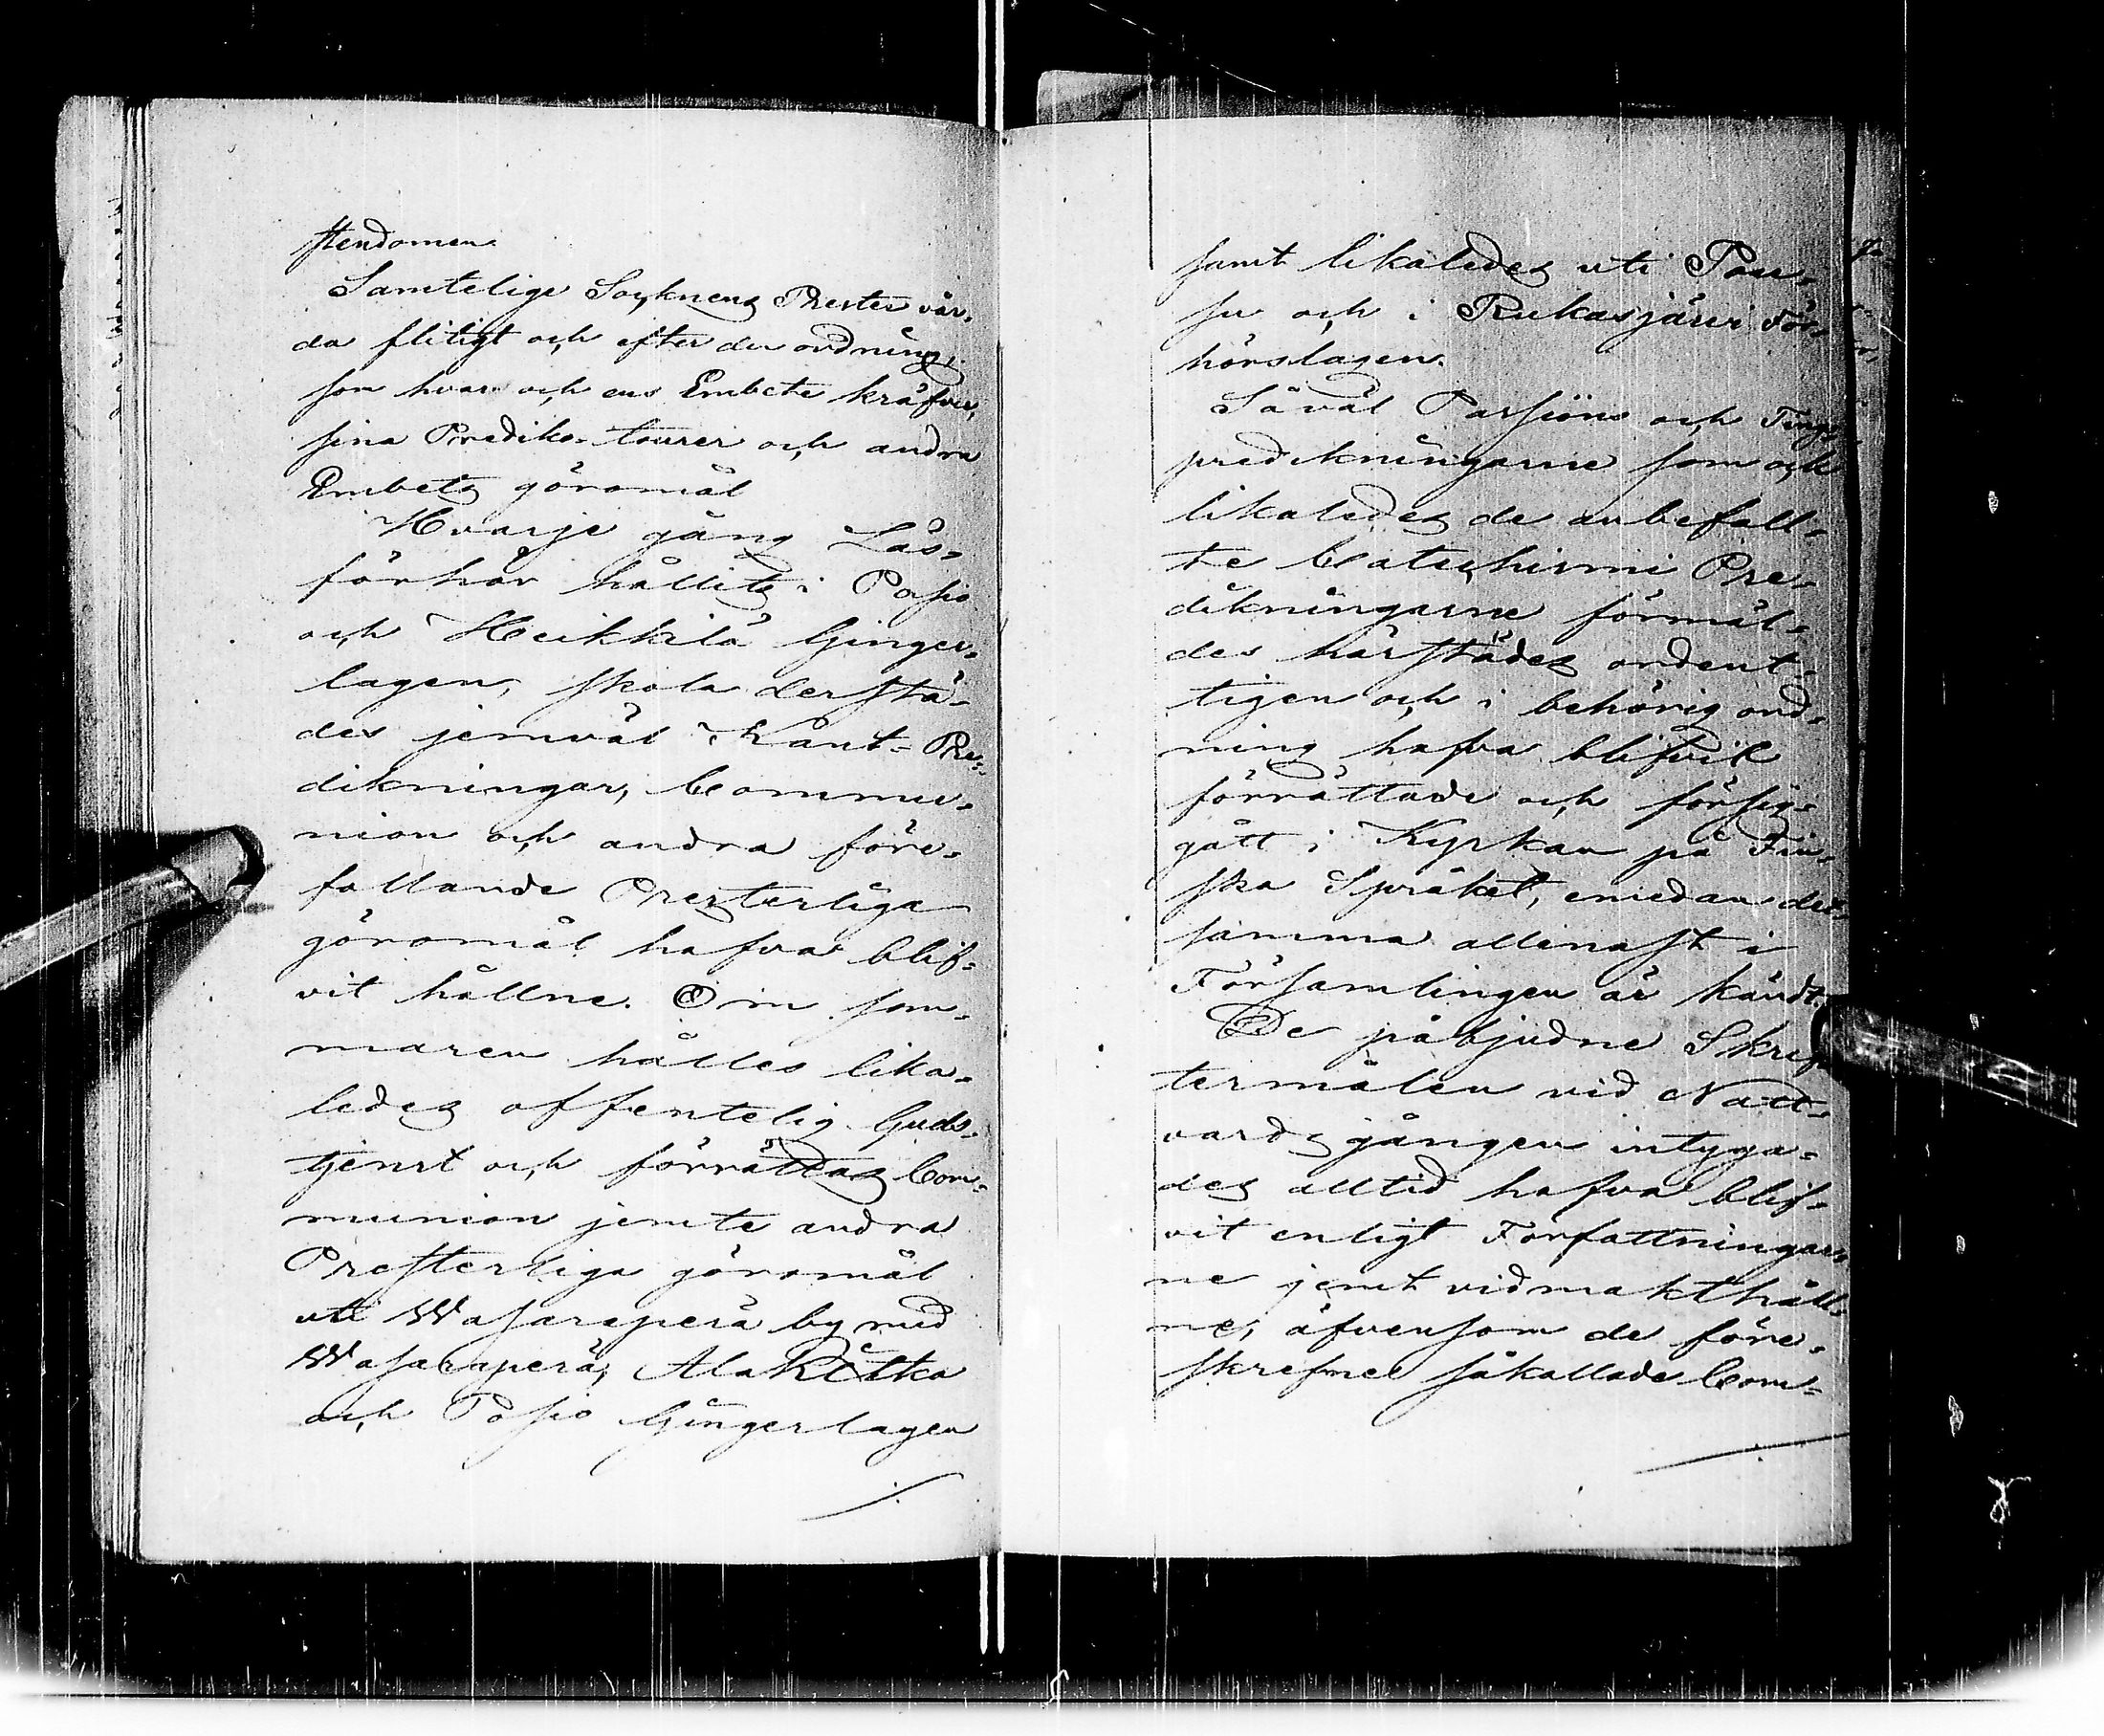 stendomen.
Samtelige Socknens Prester vår-
da flitigt och efter den ordning,
som hvars och ens Embete kräfver,
sina Prediko-tourer och andra
Embets göromål
Hvarje gång Läs-
förhör hållits i Posio
och Heikkilä Ginger-
lagen, skola derstä-
des jemväl Kånt-Pre-
dikningar, Commu-
nion och andra före-
fallande Presterliga
göromål hafva blif-
vit hållne. Om som-
maren hålles lika-
ledes offentelig Guds-
tjenst och förrättas Com-
munion jemte andra
Presterliga göromål
uti Wasaraperä by med
Wasaraperä, AlaKitka
och Posio Gingerlagen
samt likaledes uti Pou-
su och i Rukasjärvi För-
hörslagen.
Såväl Passions och Tings
predikningarne som ock
likaledes de anbefall-
te Catechismi Pre-
dikningarne förmäl-
des härstädes ordent-
ligen och i behörig ord-
ning hafva blifvit
förrättade och försig-
gått i Kyrkan på Fin-
ska Språket, emedan det-
samma allenast i
Församlingen är kändt.
De påbjudne Skrif-
termålen vid Natt-
vards gången intyga-
des alltid hafva blif-
vit enligt Författningar-
ne jemt vidmakthåll-
ne, äfvensom de före-
skrefne såkallade Com-